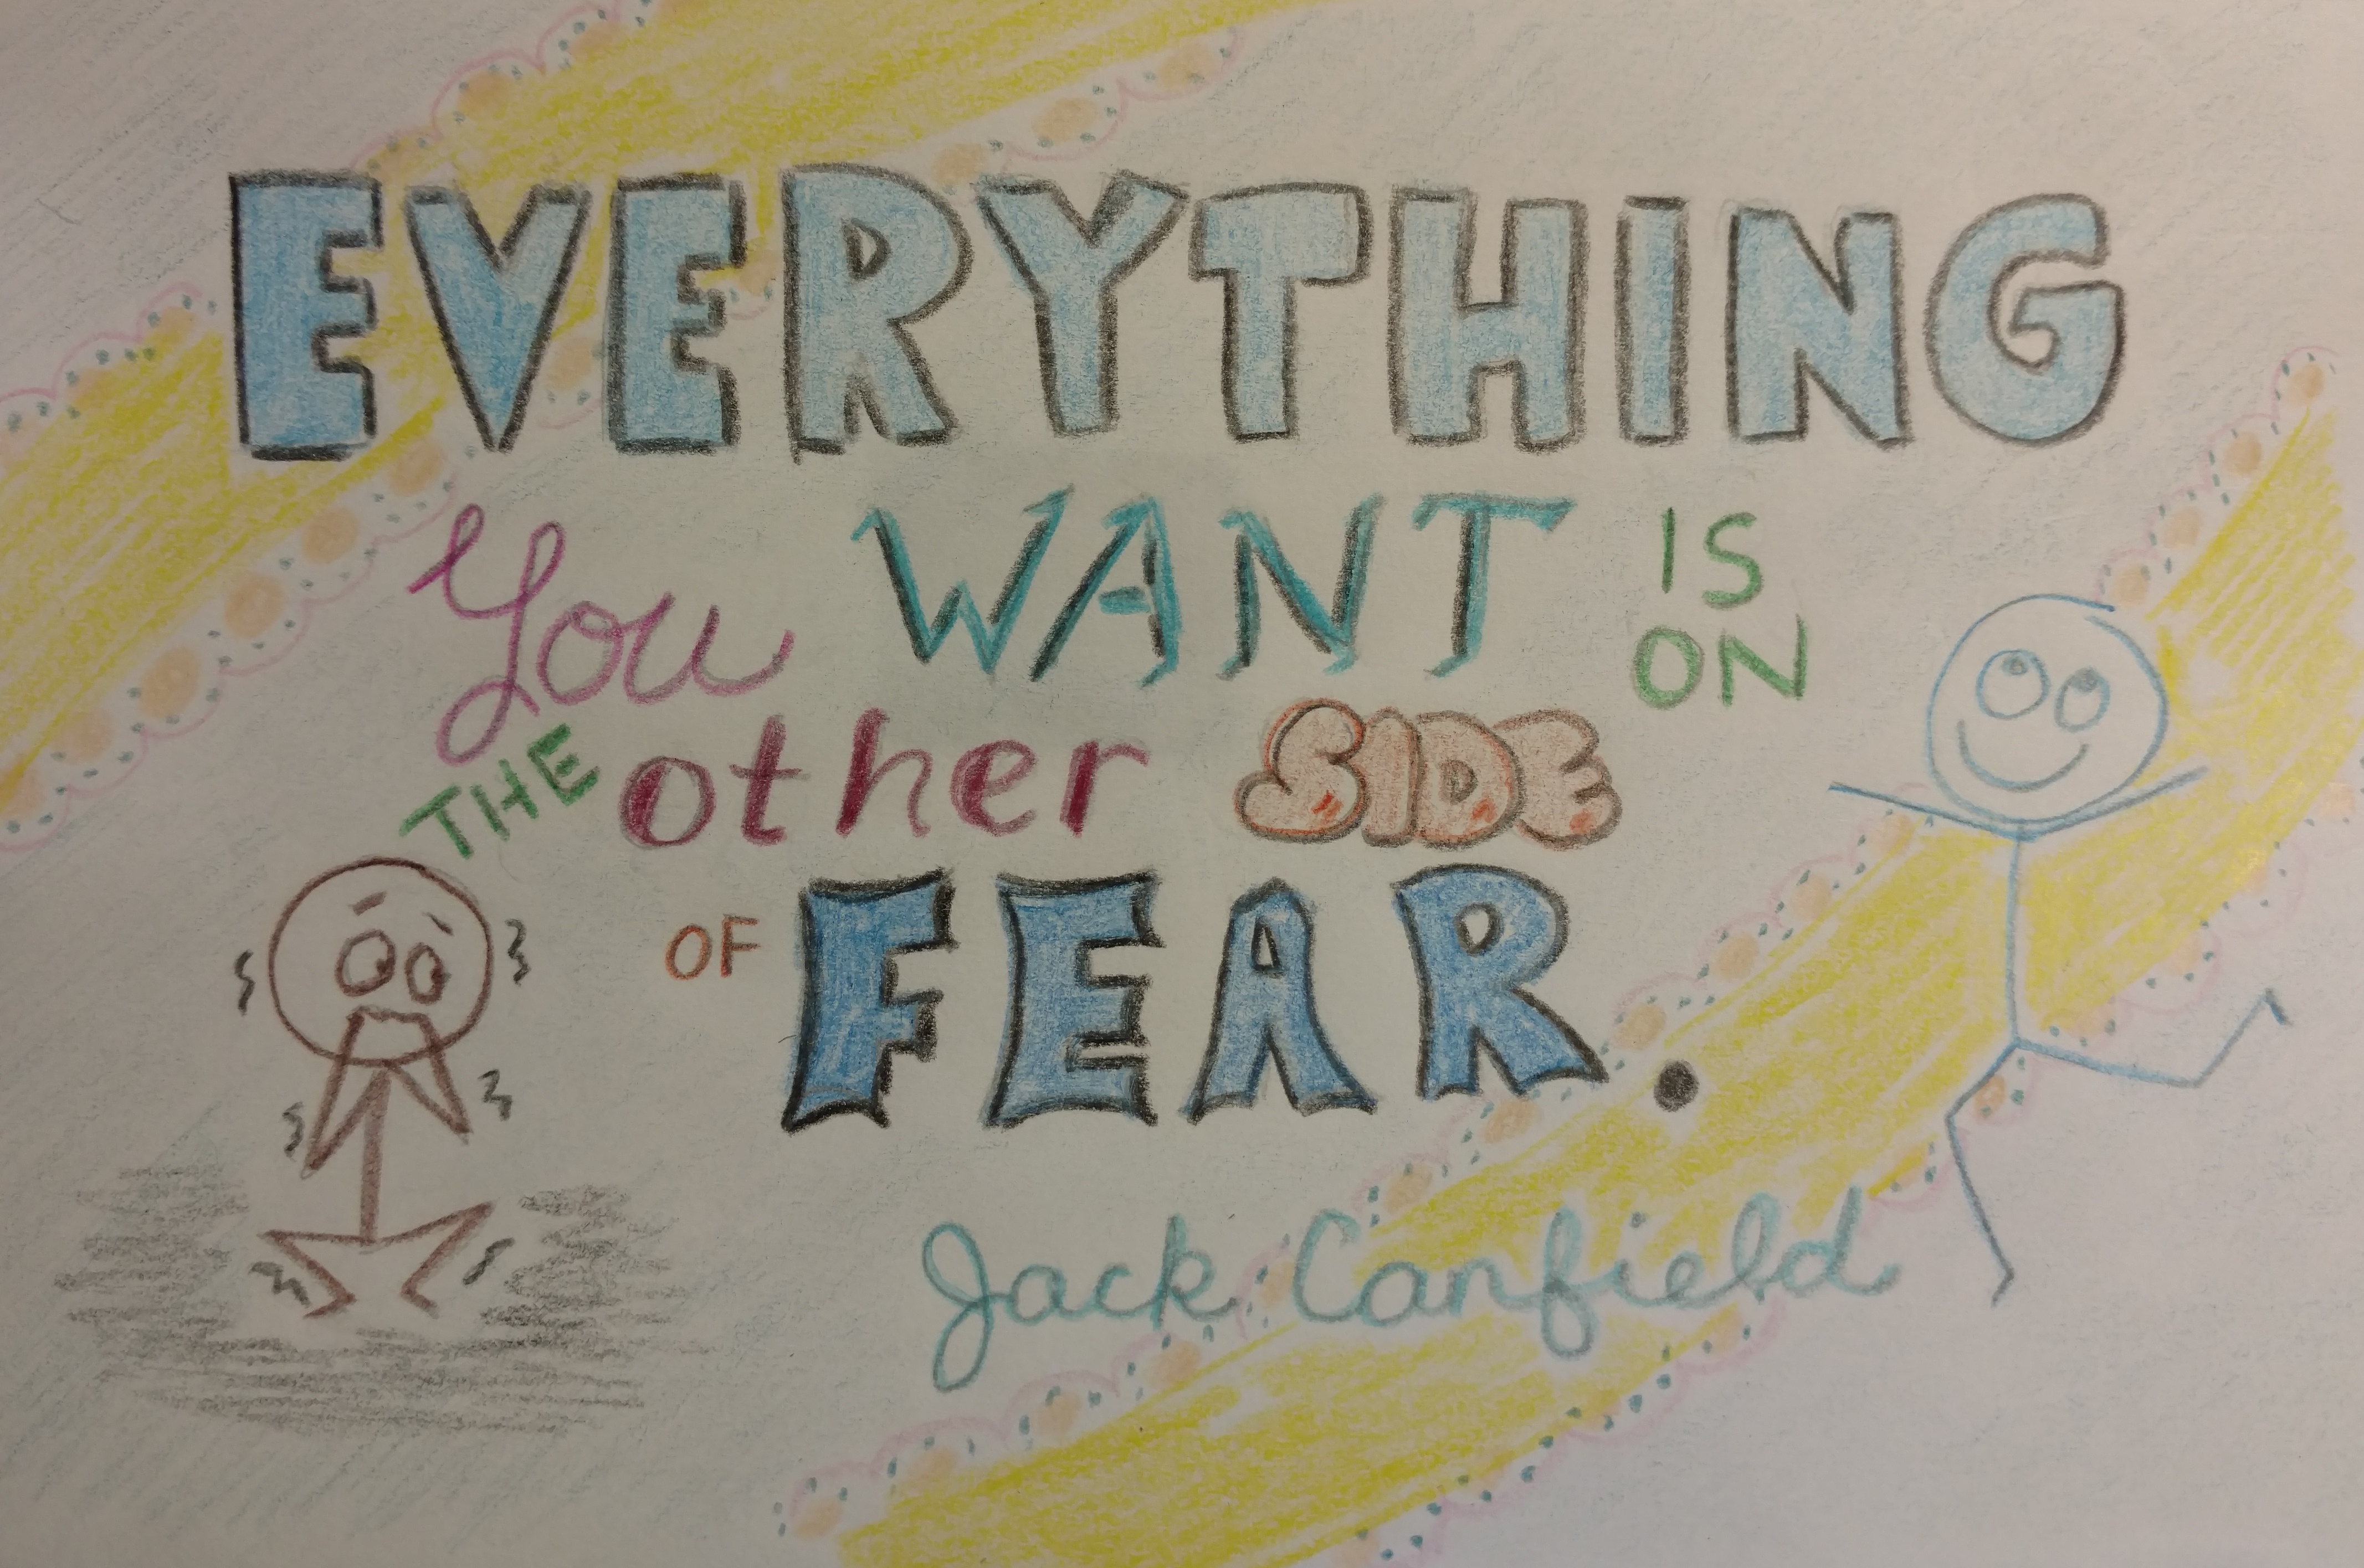 EVERYTHING
You WANT IS
ON
THE other SIDE
OF FEAR.
Jack Canfield